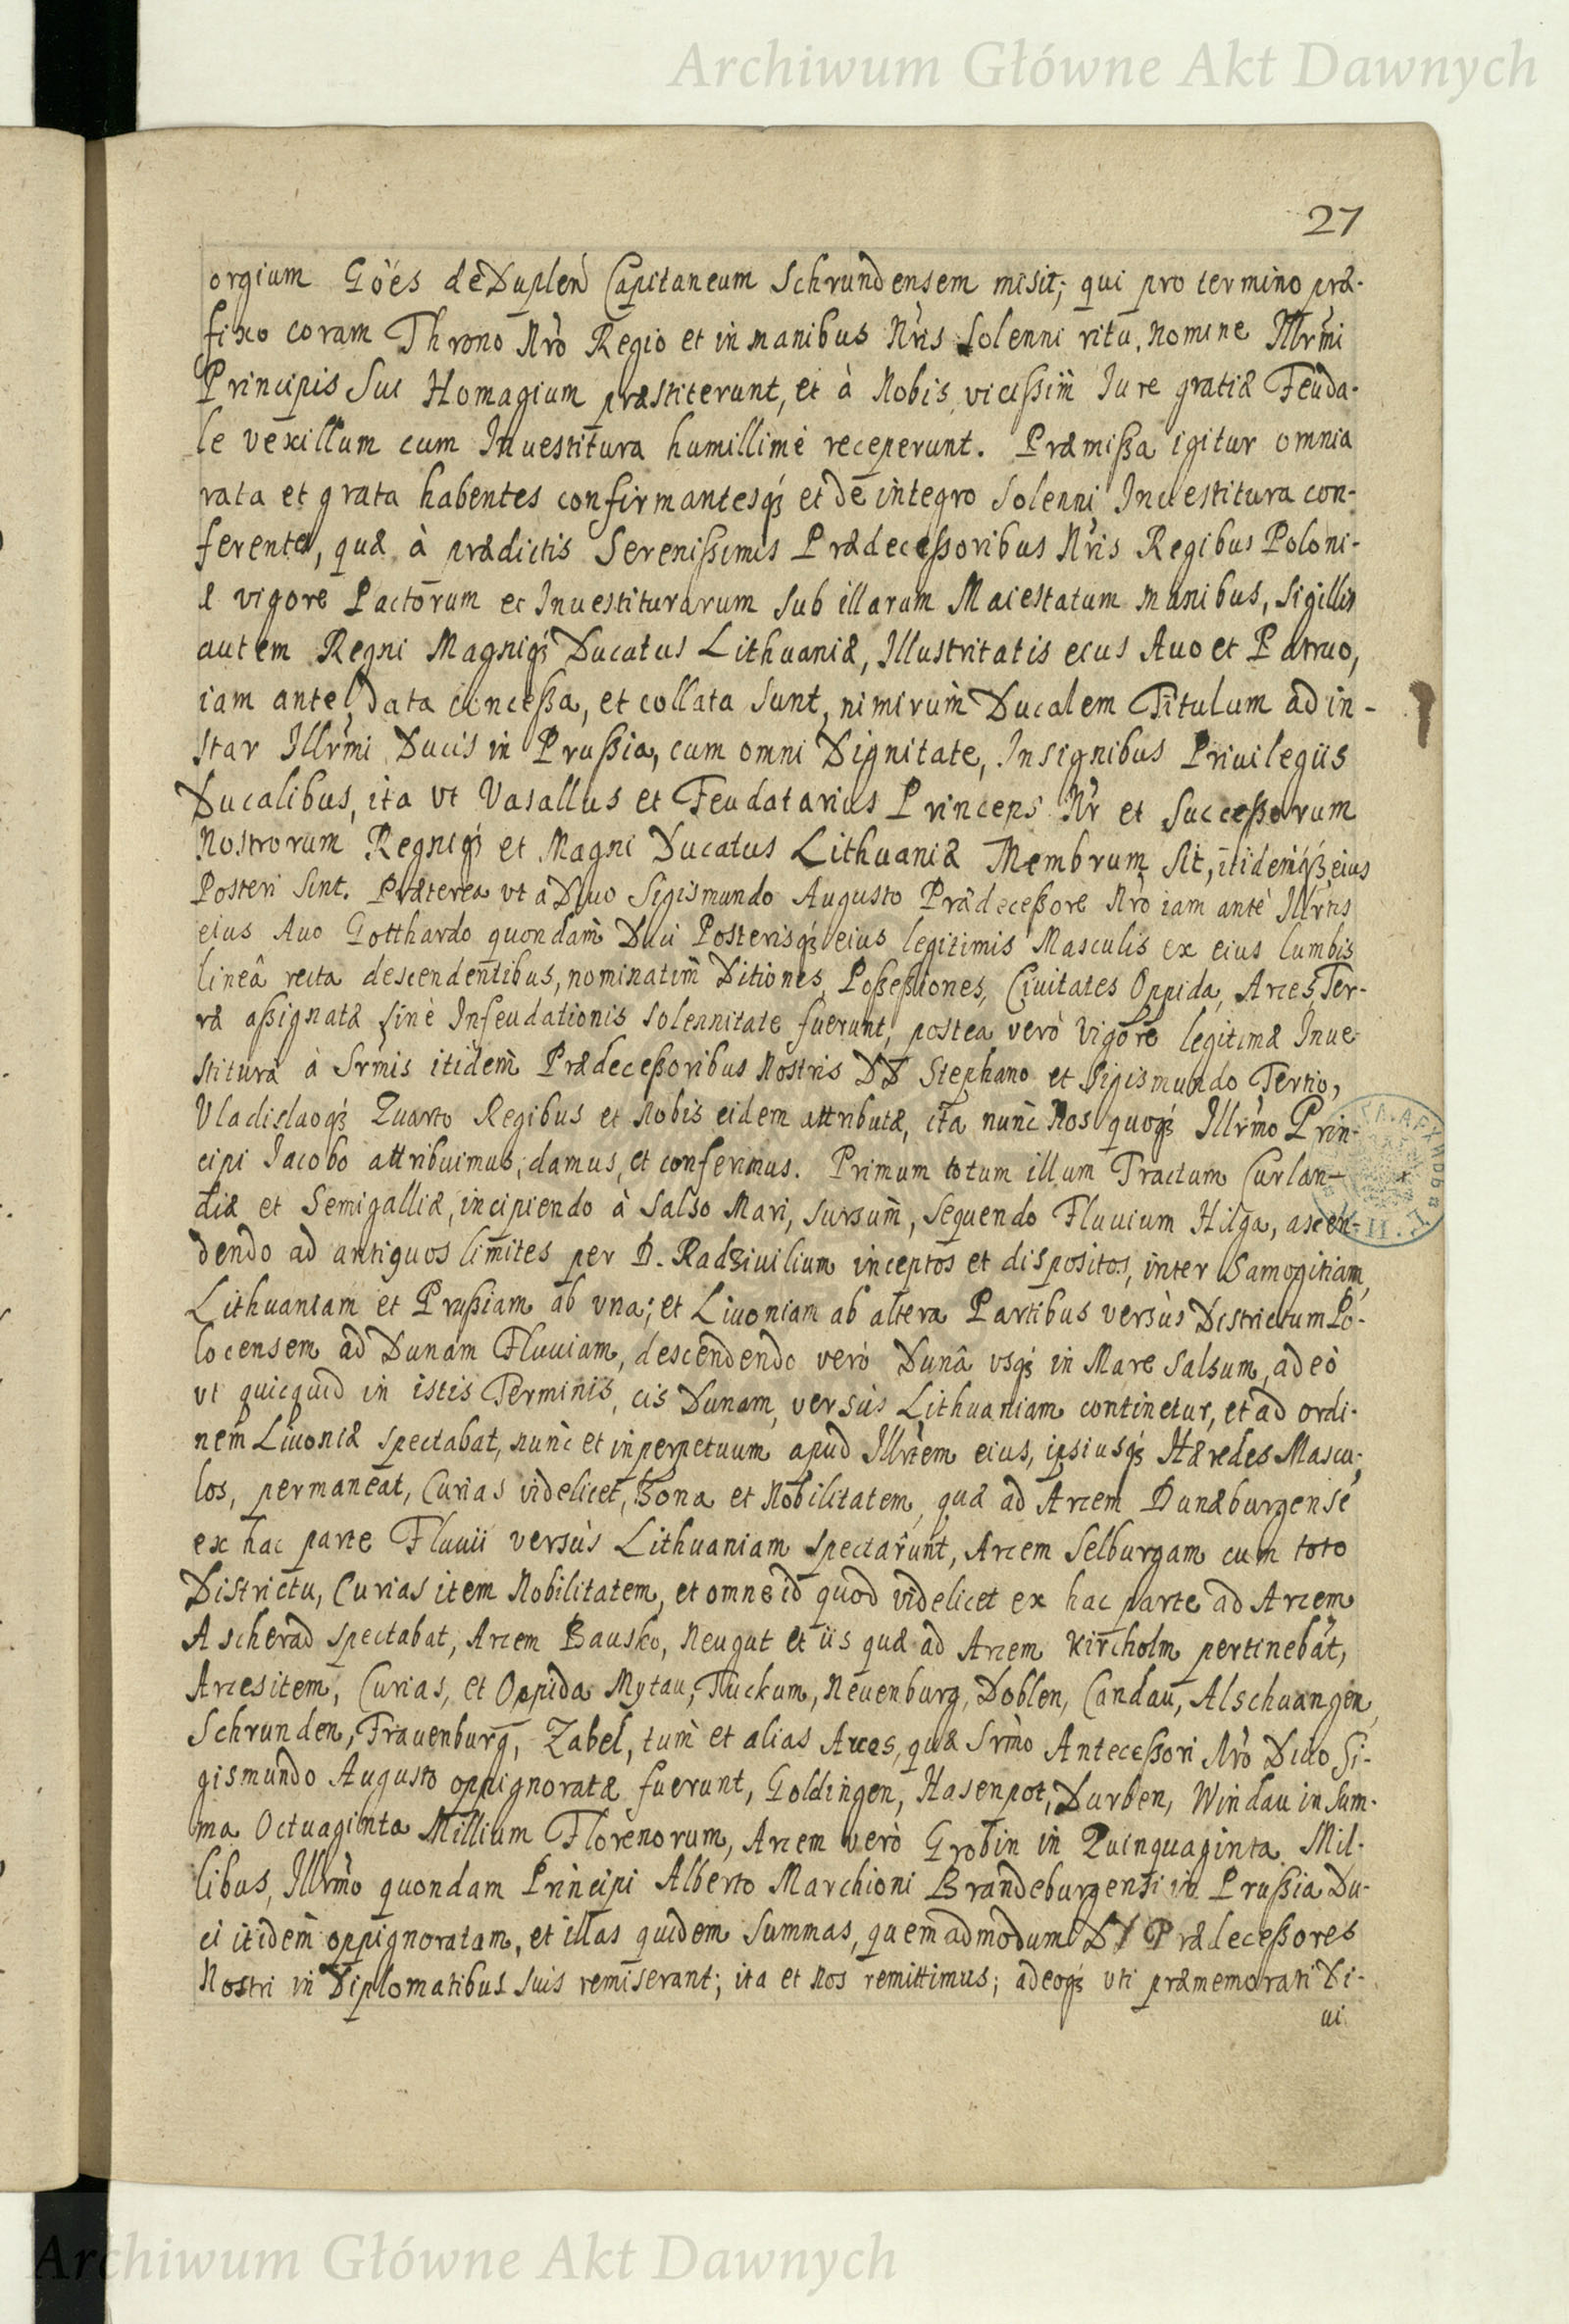 Archiwum Główne Akt Dawnych
27
orgium Göes de Duplen Capitaneum Schrundensem misit; qui pro termino præ-
fixo coram Throno Nrò Regio et in manibus Nris Solenni ritu, nomine Illrmi
Principis Sui Homagium præstiterunt, et à Nobis vicißim Iure gratiæ Feuda-
le vexillum cum Inuestitura humillimè receperunt. Præmißa igitur omnia
rata et grata habentes confirmantesq́ꝫ et de integro Solenni Inuestitura con-
ferentes, quæ à prædictis Serenißimis Prædeceßoribus Nris Regibus Poloni-
æ vigore Pactorum et Inuestiturarum sub illarum Maiestatum manibus, Sigillis
autem Regni Magniq́ꝫ Ducatus Lithuaniæ, Illustritatis eius Auo et Patruo,
iam ante data conceßa, et collata sunt, nimirùm Ducalem Titulum ad in-
star Illrmi Ducis in Prußia, cum omni Dignitate, Insignibus Priuilegiis
Ducalibus, ita vt Vasallus et Feudatarius Princeps Nr et Succeßorum
Nostrorum Regniq́ꝫ et Magni Ducatus Lithuaniæ Membrum sit, itidemq́ꝫ eius
Posteri sint. Præterea vt à Diuo Sigismundo Augusto Prædeceßore Nrò iam antè Illrtis
eius Auo Gotthardo quondam Duci Posterisq́ꝫ eius legitimis Masculis ex eius lumbis
lineâ recta descendentibus, nominatim Ditiones, Poßeßiones, Ciuitates Oppida, Arces, Ter-
ræ aßignatæ sinè Infeudationis solennitate fuerunt, postea verò vigore legitimæ Inue-
stituræ à Srmis itidem Prædeceßoribus Nostris DD Stephano et Sigismundo Tertio,
Vladislaoq́ꝫ Quarto Regibus et Nobis eidem attributæ, ita nunc Nos quoq́ꝫ Illrmo Prin-
cipi Iacobo attribuimus, damus, et conferimus. Primum totum illum Tractum Curlan-
diæ et Semigalliæ, incipiendo à Salso Mari, sursum, sequendo Fluuium Hilga, ascen-
dendo ad antiguos limites per D. Radziuilium inceptos et dispositos, inter Samogitiam,
Lithuaniam et Prußiam ab vna; et Liuoniam ab altera Partibus versùs Districtum Po-
locensem ad Dunam Fluuiam, descendendo verò Dunâ vsq́ꝫ in Mare Salsum, adeò
vt quicquid in istis Terminis, cis Dunam, versùs Lithuaniam continetur, et ad ordi-
nem Liuoniæ spectabat, nunc et in perpetuum apud Illrtem eius, ipsiusq́ꝫ Hæredes Mascu-
los, permaneat, Curias videlicet, Bona et Nobilitatem, quæ ad Arcem Dunæburgense
ex hac parte Fluuii versùs Lithuaniam spectarunt, Arcem Selburgam cum toto
Districtu, Curias item Nobilitatem, et omne id quod videlicet ex hac parte ad Arcem
Ascherad spectabat, Arcem Bausko, Neugut et iis quæ ad Arcem Kircholm pertinebāt,
Arces item, Curias, et Oppida Mytau, Tuckum, Neuenburg, Doblen, Candau, Alschuangen,
Schrunden, Frauenburg, Zabel, tum et alias Arces, quæ Srmo Anteceßori Nrò Diuo Si-
gismundo Augusto oppignoratæ fuerunt, Goldingen, Hasenpot, Durben, Windau in Sum-
ma Octuaginta Millium Florenorum, Arcem verò Grobin in Quinquaginta Mil-
libus, Illrmo quondam Principi Alberto Marchioni Brandeburgensi in Prußia Du-
ci itidem oppignoratam, et illas quidem Summas, quemadmodum DD Prædeceßores
Nostri in Diplomatibus suis remiserant; ita et Nos remittimus; adeoq́ꝫ vti præmemorati Di-
ui
Archiwum Główne Akt Dawnych